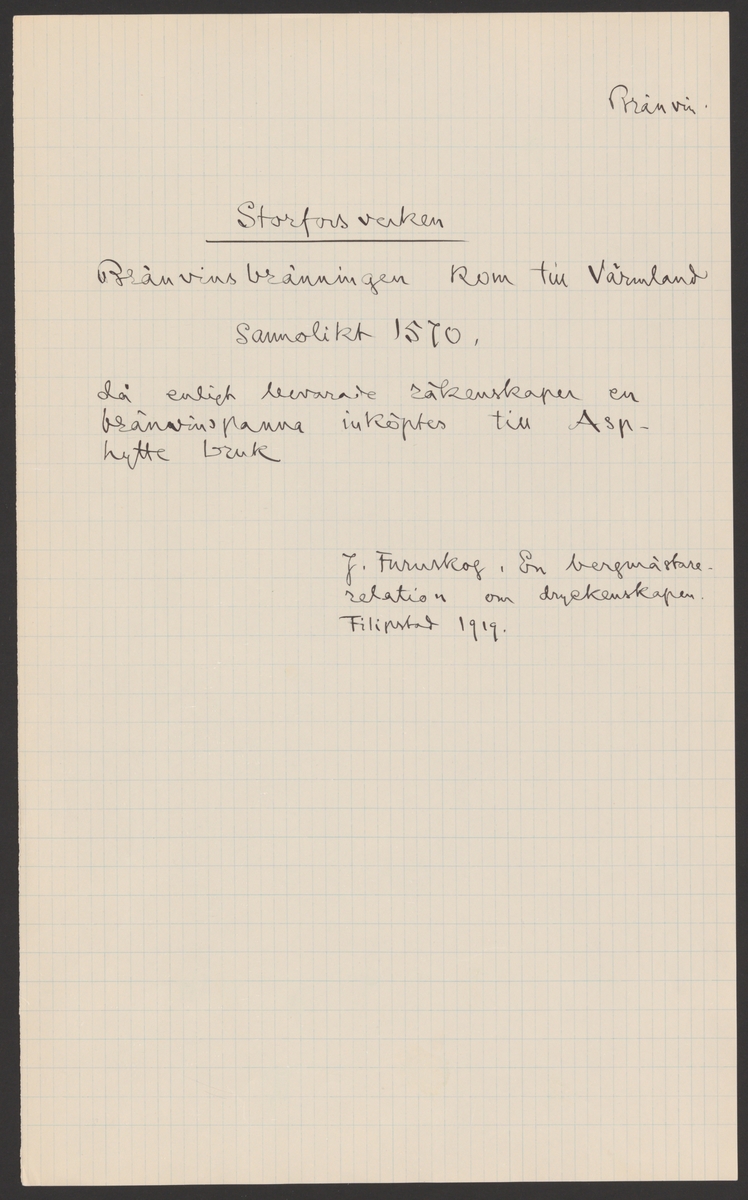 Bränvin.
Storforsverken
Bränvinsbränningen kom till Värmland
sannolikt 1570,
då enligt bevarade räkenskaper en
bränvinspanna inköptes till Asp-
hytte bruk
J. Furuskog. En bergmästare-
relation om dryckenskapen.
Filipstad 1919.